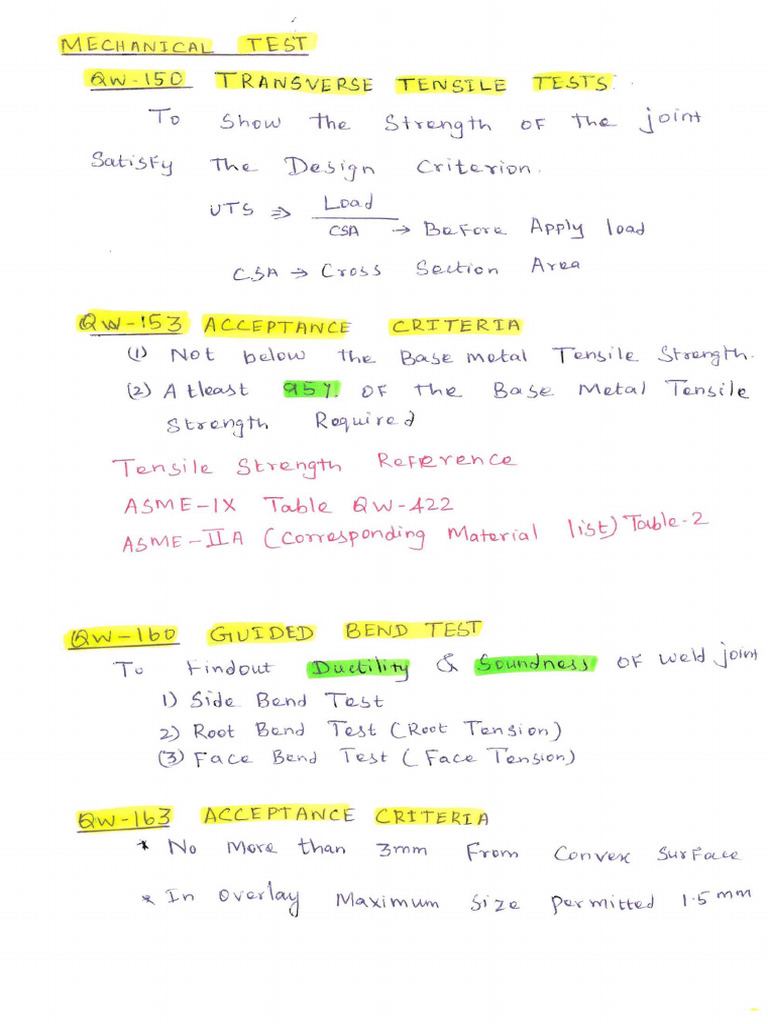 MECHANICAL TEST
QW-150 TRANSVERSE TENSILE TESTS
To Show the Strength OF the joint
Satisfy The Design Criterion.
UTS ⇒ Load
CSA → Before Apply load
CSA → Cross Section Area
QW-153 ACCEPTANCE CRITERIA
(1) Not below the Base metal Tensile Strength.
(2) Atleast 95% OF the Base Metal Tensile
Strength Required
Tensile Strength Reference
ASME-IX Table QW-422
ASME-IIA (Corresponding Material list) Table-2
QW-160 GUIDED BEND TEST
To Findout Ductility & Soundness OF weld joint
1) Side Bend Test
2) Root Bend Test (Root Tension)
(3) Face Bend Test (Face Tension)
QW-163 ACCEPTANCE CRITERIA
* No More than 3mm From Convex Surface
* In Overlay Maximum Size Permitted 1.5mm